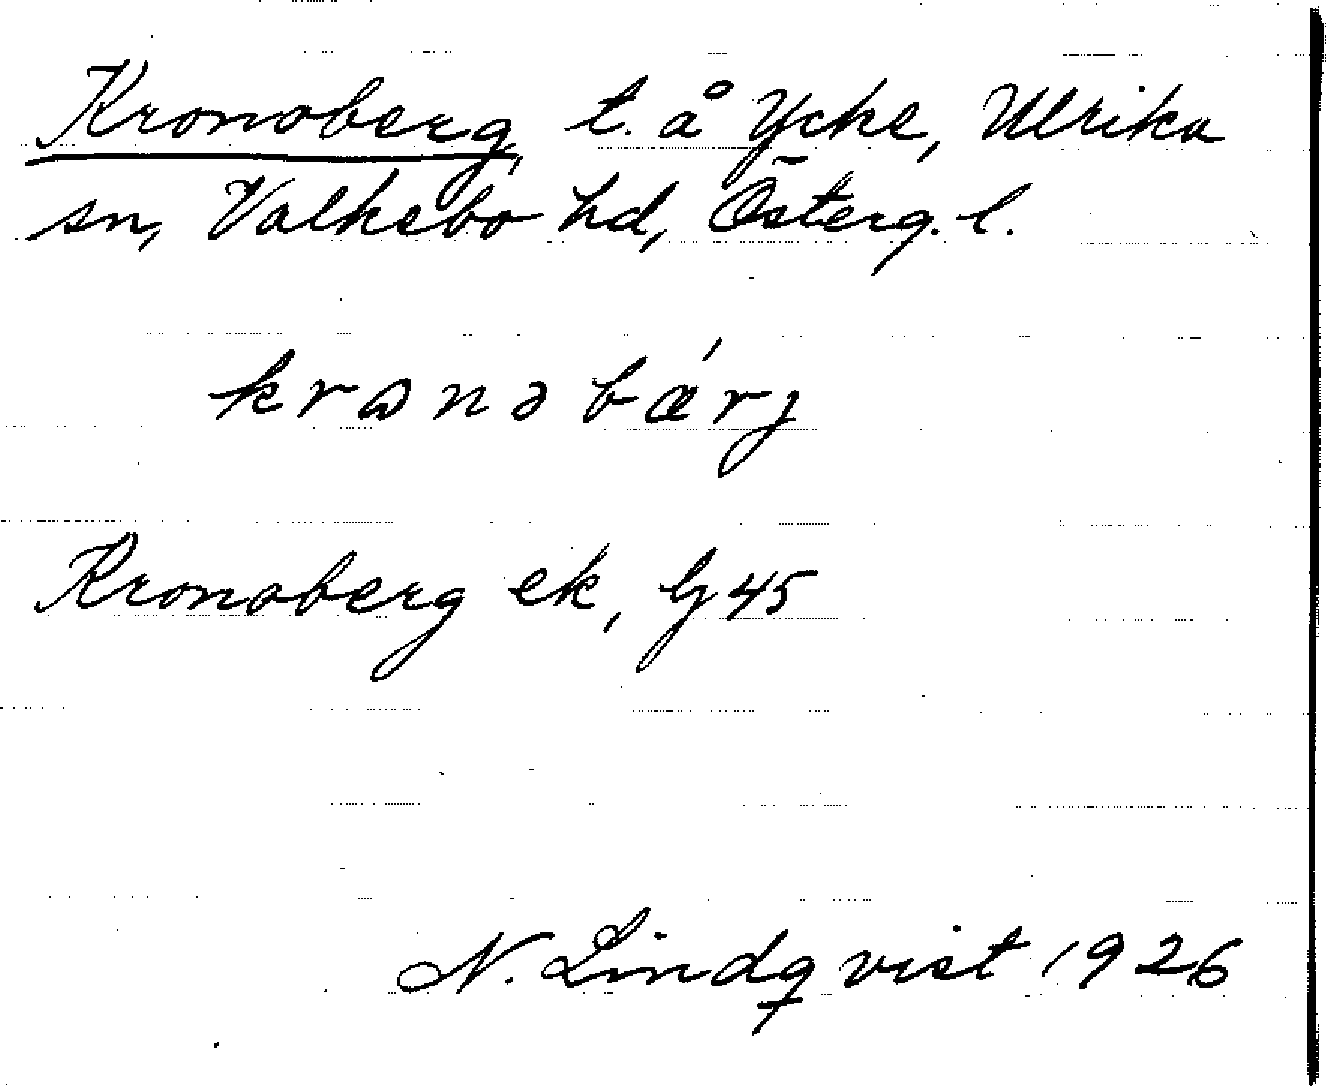 Kronoberg, t. å Ycke, Ulrika
sn, Valkebo hd, Österg. l.
krɷnəbǽrj
Kronoberg ek, Gj 45
N. Lindqvist 1926